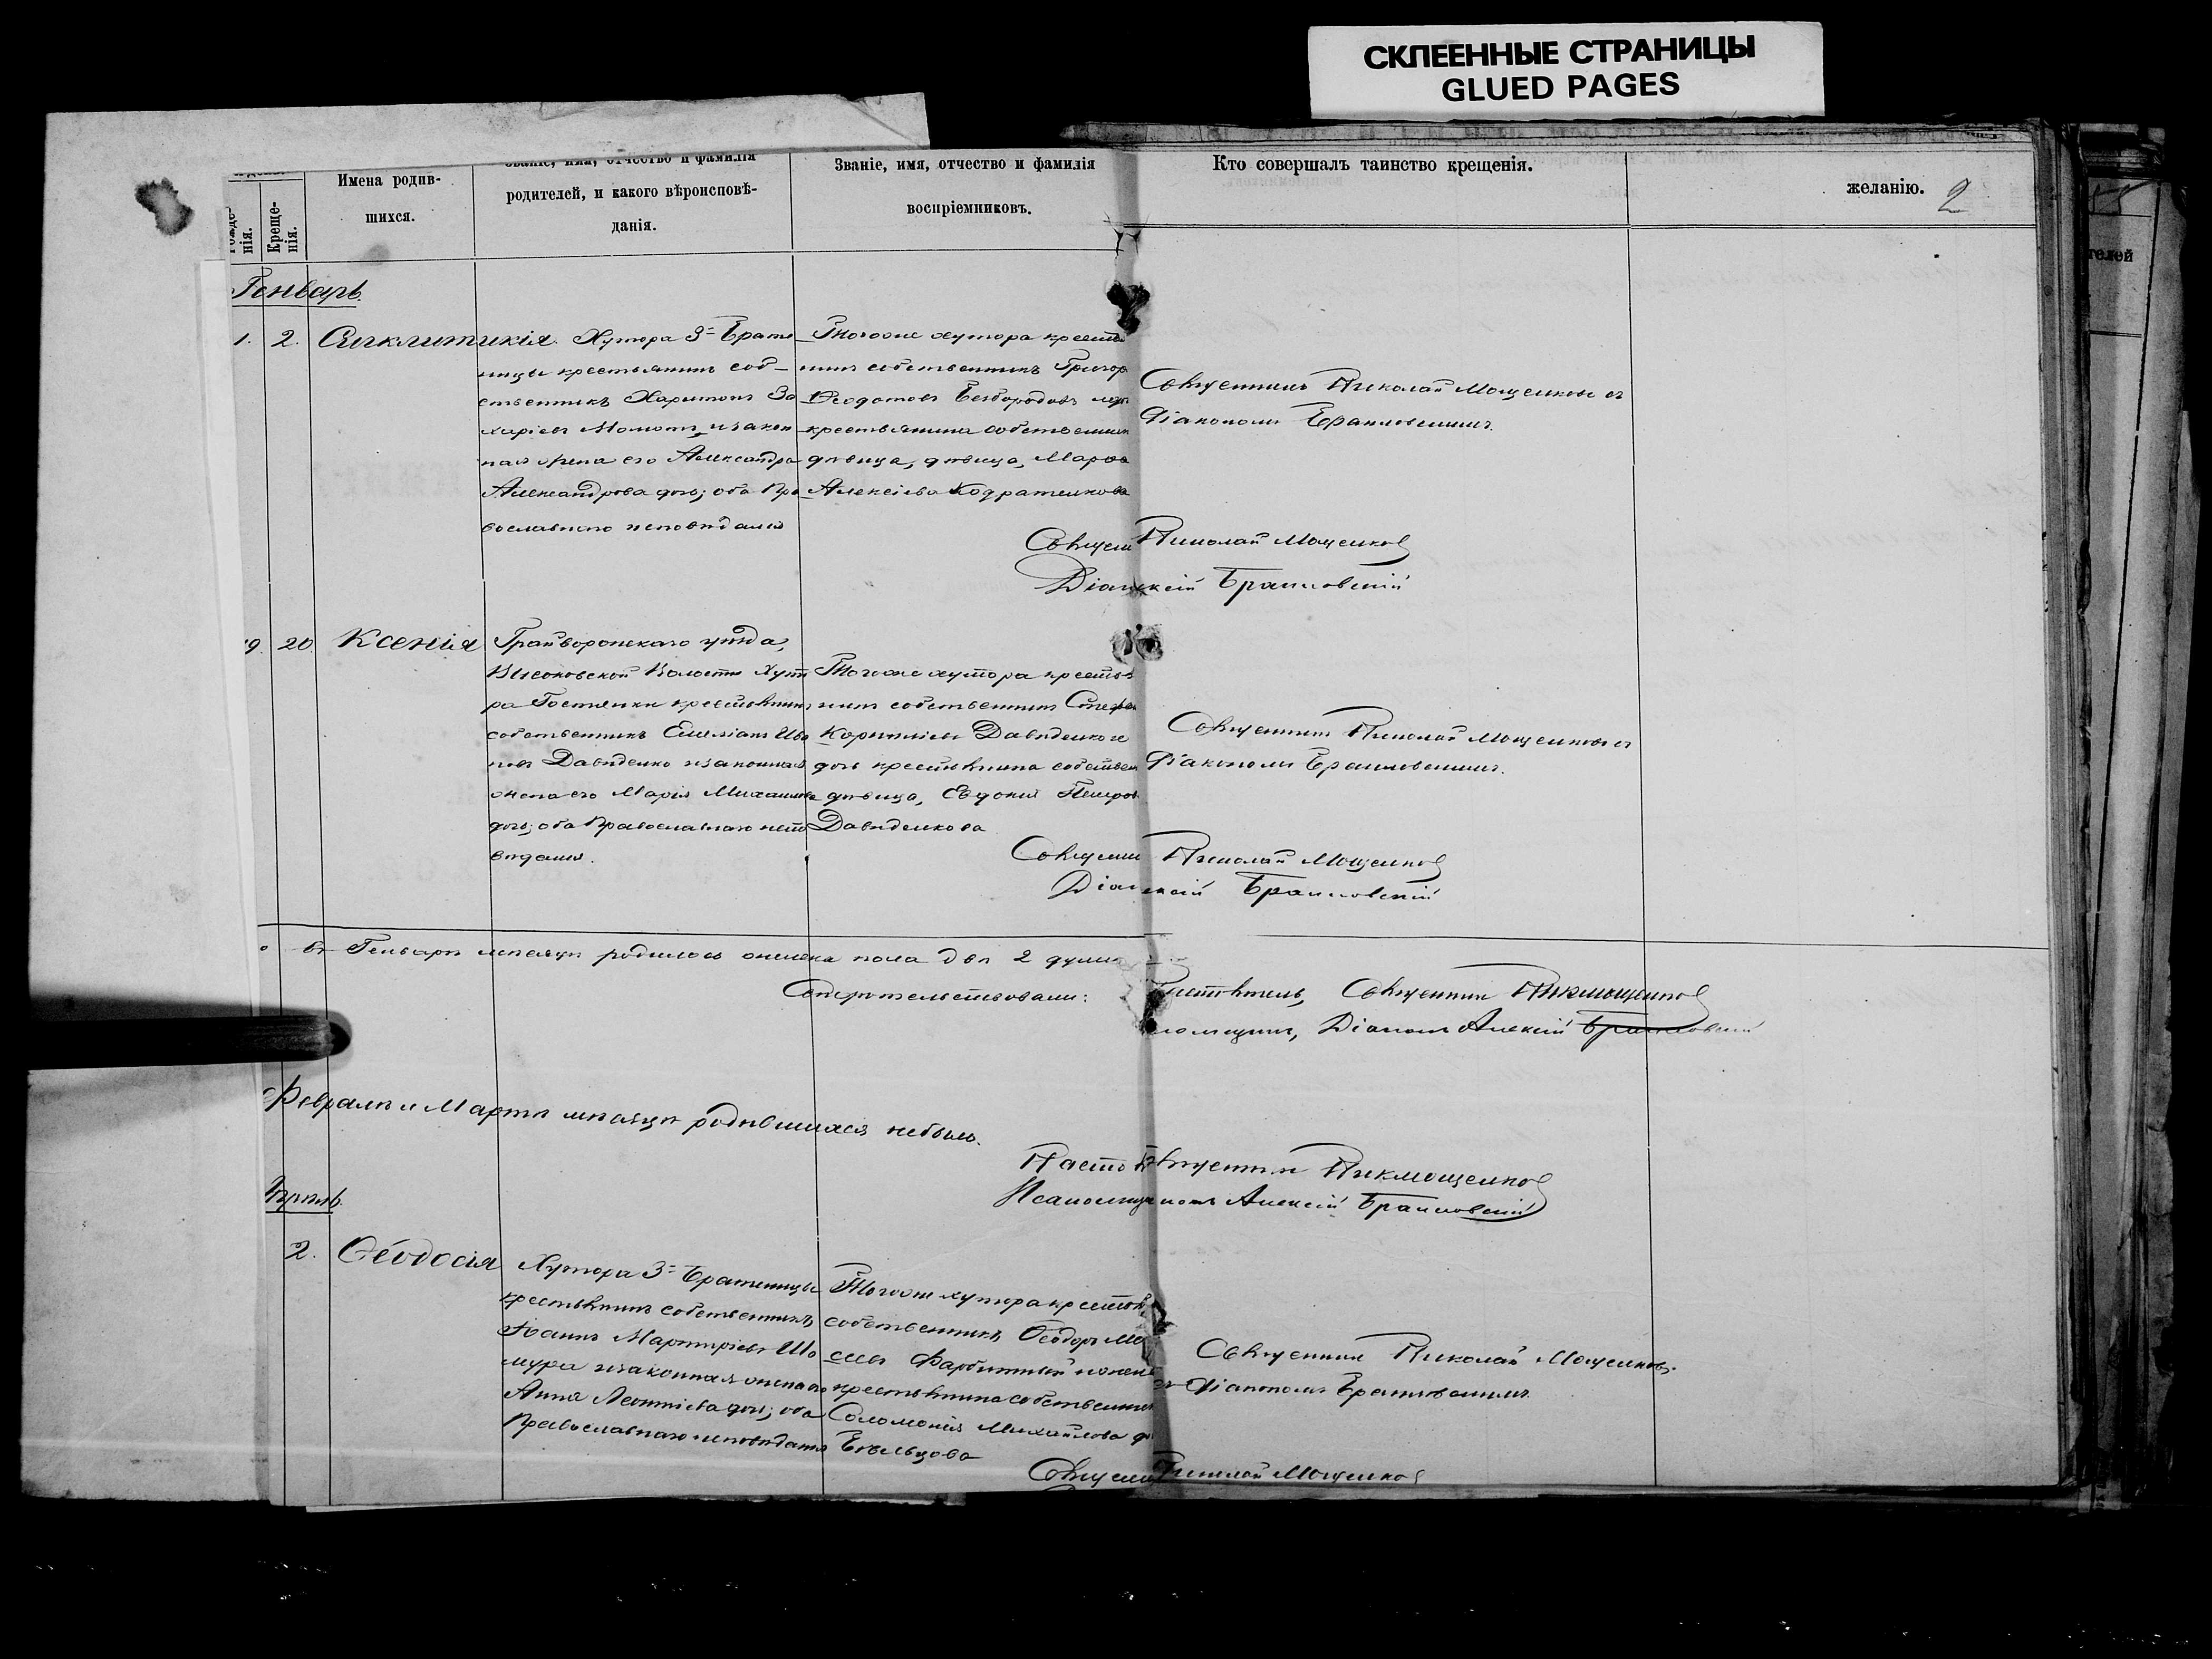 СКЛЕЕННЫЕ СТРАНИЦЫ
GLUED PAGES
Креще-
нія.
нія.
Имена родив-
шихся.
званіе, имя, отчество и фамилія
родителей, и какого вѣроисповѣ-
данія.
Званіе, имя, отчество и фамилія
воспріемниковъ.
Кто совершалъ таинство крещенія.
желанію. 2
телей
Генварь.
1. 2. Сигклитикія.
Хутора 3= Брате
ницы крестьянинъ соб-
ственникъ Харитонъ За
харіевъ и закон
ная жена его Александра
Александрова дочь; оба Пра
вославнаго исповѣданія
Тогоже хутора крестья
нинъ собственникъ Григор
Ѳеодотовъ Безбородовъ
крестьянина собственник
дѣвица, дѣвица, Марѳа
Алексѣева Кодратенкова
Священникъ Николай Мощенковъ съ
Діакономъ Браиловскимъ.
Священ Николай Мощенков
Діак ксій Браиловскій
9. 20. Ксенія
Грайворонскаго уѣзда,
Волости Хуто
ра Гостенки крестьянинъ
собственникъ Емеліанъ Ива
новъ Давиденко и законная
жена его Марія Михаилова
дочь; оба Православнаго испо
вѣданія.
Тогоже хутора крестья
нинъ собственникъ Стефан
Корниліевъ Давиденко и
дочь крестьянина собствен
дѣвица, Евдокія Петров
Давиденкова
Священникъ Николай Мощенковъ съ
Діакономъ Браиловскимъ.
Священ Николай Мощенков
Діа ксій Браиловскій
въ Генварѣ мѣсяцѣ родилось женска пола двѣ 2 души
Свидѣтельствовали:
Священникъ Ник Мощенков
Діаконъ Алексій Браиловскій
Февралѣ и Мартѣ мѣсяцѣ родившихся небыло.
Насто Священник Ник Мощенков
Алексій Браиловскій
Апрѣль.
2. Ѳеодосія
Хутора 3= Братеницы
крестьянинъ собственникъ
Іоаннъ Мартиріевъ Шо
мура и законная жена его
Анна Леонтіева дочь; оба
Православнаго исповѣданія
Тогоже хутора крестьян
собственникъ Ѳеодоръ Мо
сеевъ и жена
крестьянина собственник
Соломонія Михайлова до
Священник Николай Мощенковъ.
съ Діакономъ Браиловскимъ
Священ Николай Мощенков